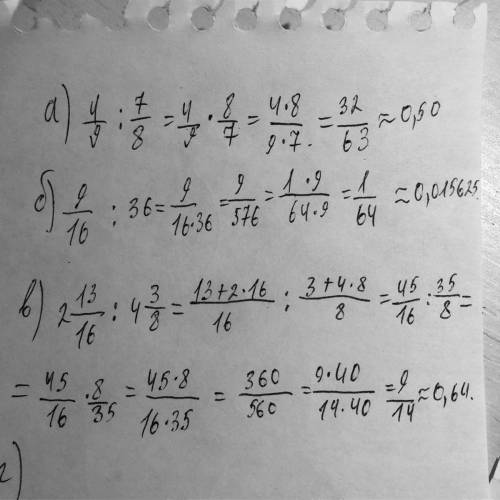 а) 4/9 : 7/8 = 4/9 · 8/7 = 4·8/9·7. = 32/63 ≈ 0,50
б) 9/16 : 36 = 9/16·36 = 9/576 = 1·9/64·9 = 1/64 ≈ 0,015625.
в) 2 13/16 : 4 3/8 = 13+2·16/16 : 3+4·8/8 = 45/16 : 35/8 =
= 45/16 · 8/35 = 45·8/16·35 = 360/560 = 9·40/14·40 = 9/14 ≈ 0,64.
г)